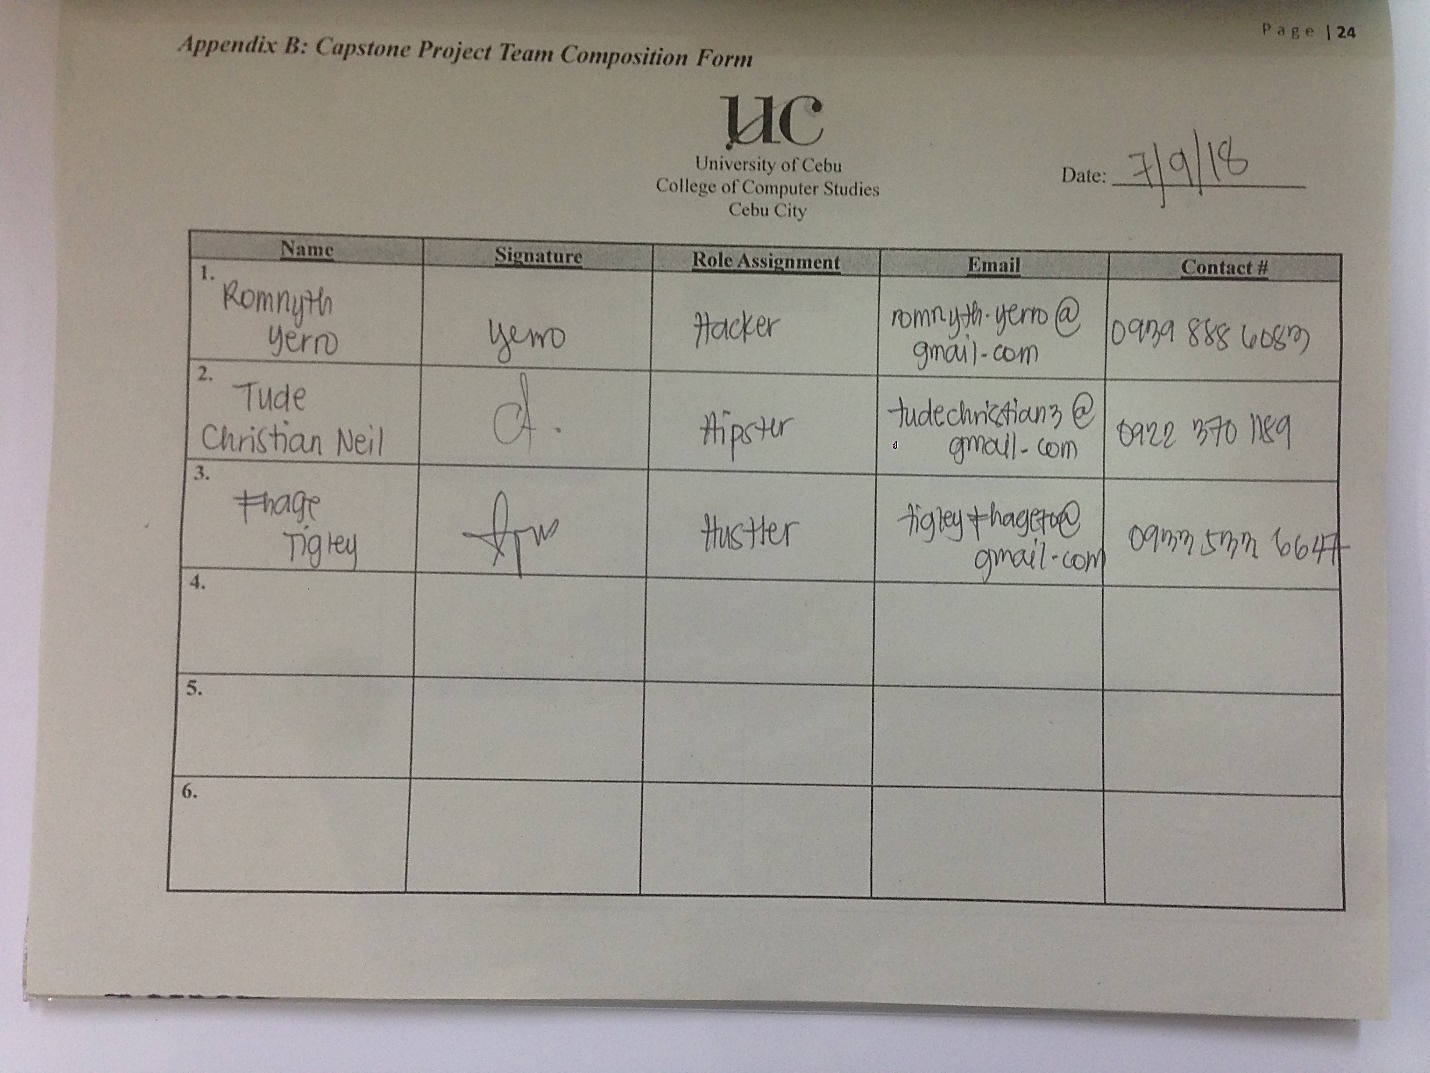 Page | 24
Appendix B: Capstone Project Team Composition Form
uc
University of Cebu
College of Computer Studies
Cebu City
Date: 7/9/18
Name Signature Role Assignment Email Contact #
1. Romnyth Yerro Yerro Hacker romnyth.yerro@gmail.com 0939 888 6083
2. Tude Christian Neil Hipster tudechristian3@gmail.com 0922 370 1189
3. Fhage Tigley Hustler 0933 533 6647
gmail.com
4.
5.
6.